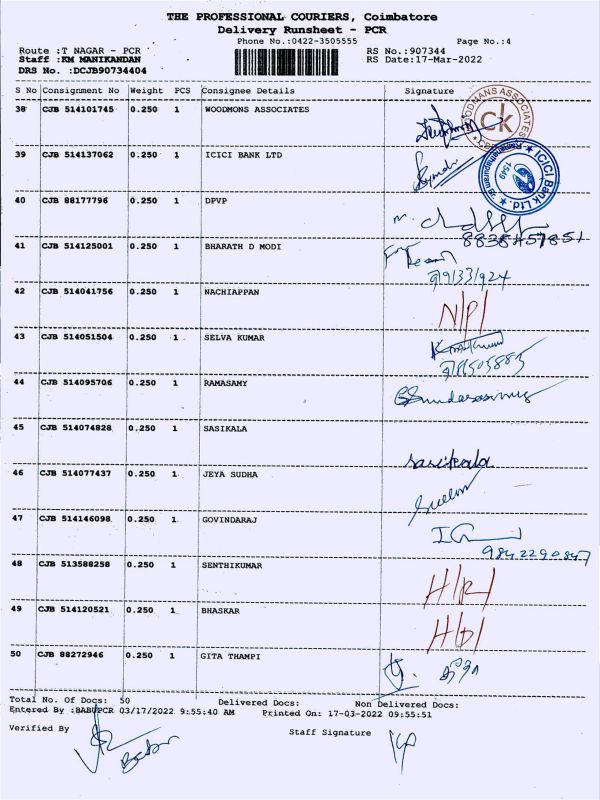 THE PROFESSIONAL COURIERS, Coimbatore
Delivery Runsheet - PCR
Phone No.:0422-3505555 Page No.:4
Route :T NAGAR - PCR RS No.:907344
Staff :KM MANIKANDAN RS Date:17-Mar-2022
DRS No. :DCJB90734404
S No Consignment No Weight PCS Consignee Details Signature
38 CJB 514101745 0.250 1 WOODMONS ASSOCIATES
39 CJB 514137062 0.250 1 ICICI BANK LTD
ICICI Bank Ltd.
40 CJB 88177796 0.250 1 DPVP
8838457851
41 CJB 514125001 0.250 1 BHARATH D MODI
42 CJB 514041756 0.250 1 NACHIAPPAN
43 CJB 514051504 0.250 1 SELVA KUMAR
44 CJB 514095706 0.250 1 RAMASAMY
45 CJB 514074828 0.250 1 SASIKALA
sasikala
46 CJB 514077437 0.250 1 JEYA SUDHA
47 CJB 514146098 0.250 1 GOVINDARAJ
9842290847
48 CJB 513588258 0.250 1 SENTHIKUMAR
49 CJB 514120521 0.250 1 BHASKAR
50 CJB 88272946 0.250 1 GITA THAMPI
Total No. Of Docs: 50 Delivered Docs: Non Delivered Docs:
Entered By :BABUPCR 03/17/2022 9:55:40 AM Printed On: 17-03-2022 09:55:51
Verified By Staff Signature